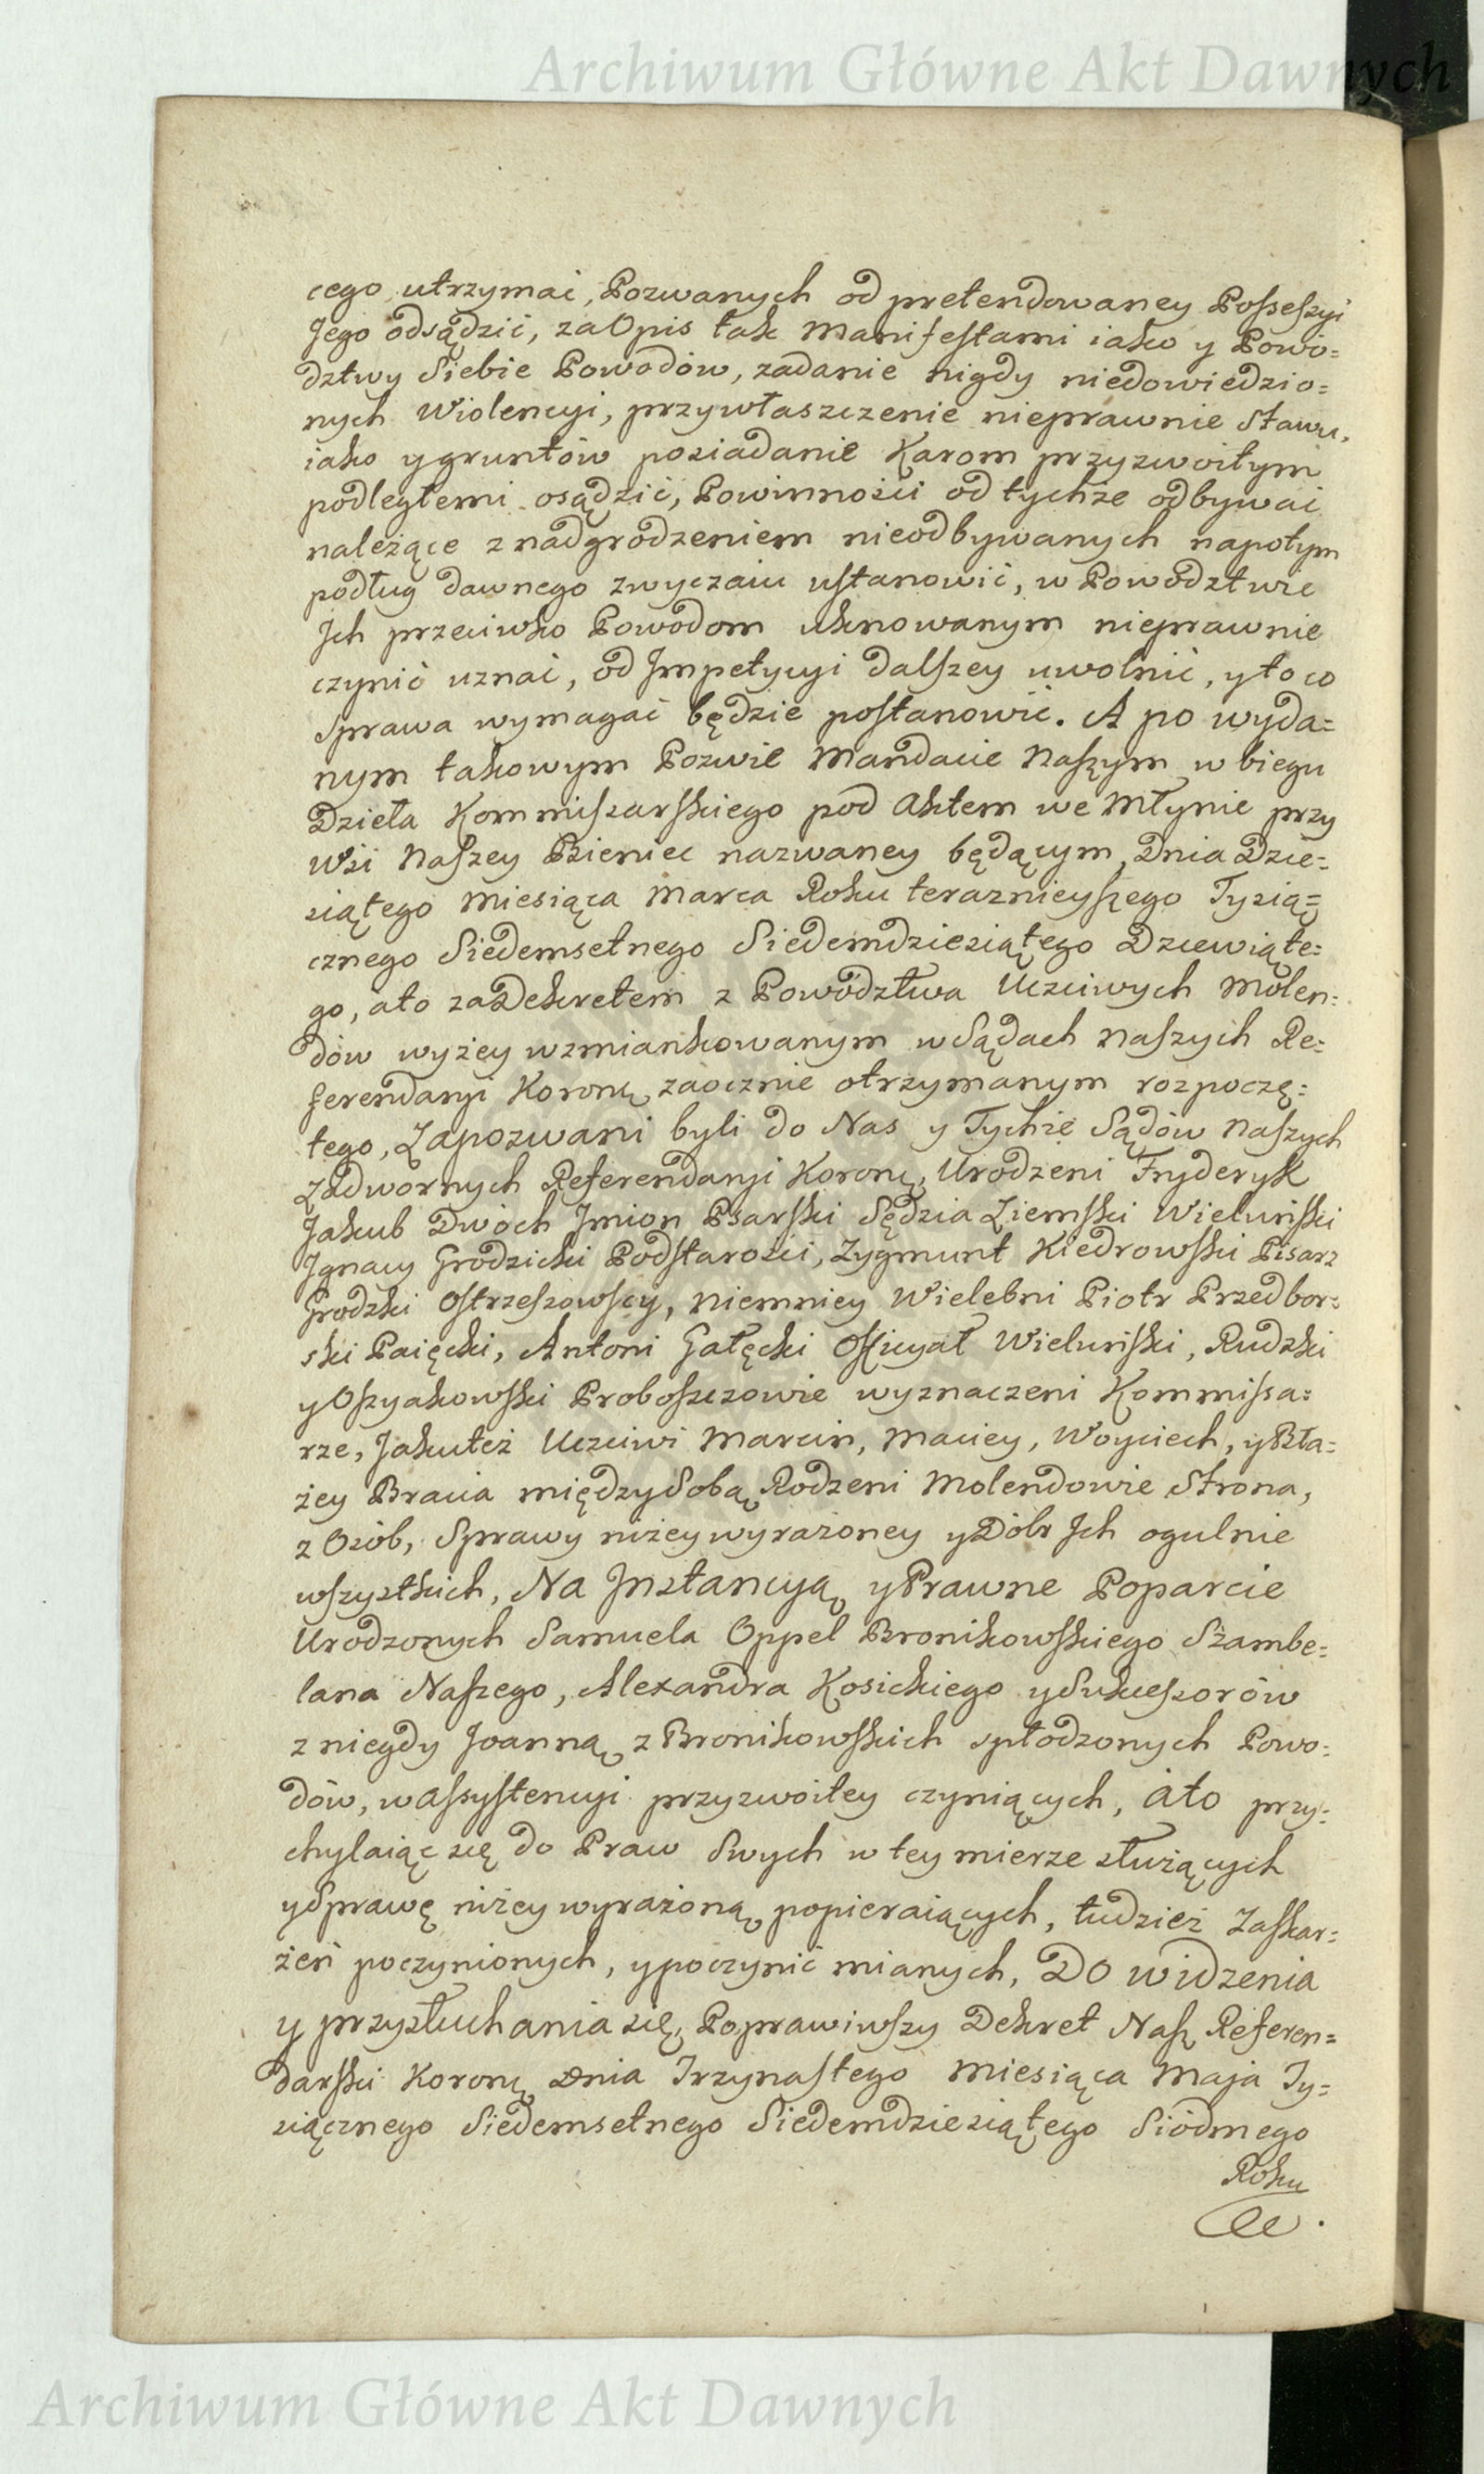 Archiwum Główne Akt Dawnych
cego utrzymać, Pozwanych od pretendowaney Possessyi
Jego odsądzić, za Opis tak Manifestami iako y Powo=
dztwy Siebie Powodów, zadanie nigdy niedowiedzio=
nych Wiolencyi, przywłaszczenie nieprawnie Stawu,
iako y gruntów posiadanie Karom przyzwoitym
podległemi osądzić, Powinności od tychże odbywać
należące z nadgrodzeniem nieodbywanych napotym
podług dawnego zwyczaiu ustanowić, w Powodztwie
Jch przeciwko Powodom uknowanym nieprawnie
czynić uznać, od Jmpetycyi dalszey uwolnić, y to co
Sprawa wymagać będzie postanowić. A po wyda=
nym takowym Pozwie Mandacie Naszym w biegu
Dzieła Kommissarskiego pod Aktem we Młynie przy
Wsi Naszey Bieniec nazwaney będącym, Dnia Dzie=
siątego Miesiąca Marca Roku teraznieyszego Tysią=
cznego Siedemsetnego Siedemdziesiątego Dziewiąte=
go, a to za Dekretem z Powództwa Uczciwych Molen=
dów wyżey wzmiankowanym w Sądach Naszych Re=
ferendaryi Koronney zaocznie otrzymanym rozpoczę=
tego, Zapozwani byli do Nas y Tychże Sądów Naszych
Zadwornych Referendaryi Koronney, Urodzeni Fryderyk
Jakub Dwóch Jmion Psarski Sędzia Ziemski Wieluński
Jgnacy Grodzicki Podstarości, Zygmunt Kiedrowski Pisarz
Grodzki Ostrzeszowscy, niemniey Wielebni Piotr Przedbor=
ski Paięcki, Antoni Gałęcki Officyał Wieluński, Rudzki
y Oszyakowski Proboszczowie wyznaczeni Kommissa=
rze, Jakuteż Uczciwi Marcin, Maciey, Woyciech, y Bła=
żey Bracia między Sobą Rodzeni Molendowie Strona,
z Osób, Sprawy niżey wyrażoney y Dóbr Jch ogulnie
wszystkich, Na Jnstancyą y Prawne Poparcie
Urodzonych Samuela Oppel Bronikowskiego Szambe=
lana Naszego, Alexandra Kosickiego y Sukcessorów
z niegdy Joanną z Bronikowskich spłodzonych Powo=
dów, w Assystencyi przyzwoitey czyniących, a to przy=
chylaiąc się do Praw Swych w tey mierze służących
y Sprawę niżey wyrażoną popieraiących, tudzież Zaskar=
żeń poczynionych, y poczynić mianych, Do widzenia
y przysłuchania się, Poprawiwszy Dekret Nasz Referen=
darski Koronny Dnia Trzynastego Miesiąca Maja Ty=
siącznego Siedemsetnego Siedemdziesiątego Siódmego
Roku
Archiwum Główne Akt Dawnych